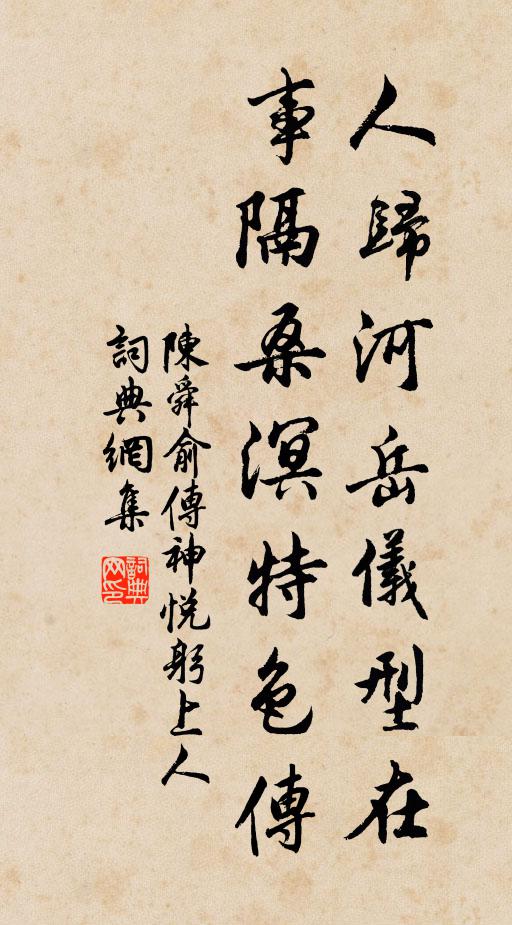 人歸河岳儀型在
事隔桑溟特色傳
陳舜俞傳神悅躬上人
詞典網集
詞典网印